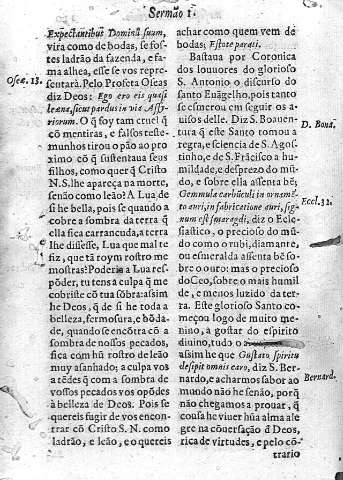 Sermão 1.
Expectantibus Dominũ suum,
vira como de bodas, se fos-
tes ladrão da fazenda, e fa-
ma alhea, esse se vos repre-
sentarà. Pelo Profeta Oseas
Oseæ. 13.
diz Deos: Ego ero eis quasi
leæna, sicut pardus in via Assy-
riorum. O q̃ foy tam cruel q̃
cõ mentiras, e falsos teste-
munhos tirou o pão ao pro
ximo cõ q̃ sustentaua seus
filhos, como quer q̃ Cristo
N. S. lhe apareça na morte,
senão como leão? A Lua de
si he bella, pois se quando a
cobre a sombra da terra q̃
ella fica carrancuda, a terra
lhe dissesse, Lua que mal te
fiz, que tã roym rostro me
mostras? Poderia a Lua res-
põder, tu tens a culpa q̃ me
cobriste cõ tua sõbra: assim
he Deos, q̃ de si he toda a
belleza, fermosura, e bõda-
de, quando se encõtra cõ a
sombra de nossos pecados,
fica com hũ rostro de leão
muy asanhado; a culpa vos
a tẽdes q̃ com a sombra de
vossos pecados vos opõdes
à belleza de Deos. Pois se
quereis fugir de vos encon-
trar cõ Cristo S. N. como
ladrão, e leão, e o quereis
achar como quem vem de
bodas; Estote parati.
Bastaua por Coronica
dos louuores do glorioso
S. Antonio o discurso do
santo Euãgelho, pois tanto
se esmerou em seguir os a-
uisos delle. Diz S. Boauen-
D. Bona.
tura q̃ este Santo tomou a
regra, e sciencia de S. Agos-
tinho, e de S. Frãcisco a hu-
mildade, e desprezo do mũ-
do, e sobre ella assenta bẽ;
Gemmula carbũculi in ornamẽ-
Eccl. 32.
to auri, in fabricatione auri, sig-
num est smaragdi, diz o Ecle-
siastico, o precioso do mũ-
do como o rubi, diamante,
ou esmeralda assenta bẽ so-
bre o ouro: mas o precioso
do Ceo, sobre o mais humil
de, e menos luzido da ter-
ra. Este glorioso Santo co-
meçou logo de muito me-
nino, a gostar do espirito
diuino, tudo o
assim he que Gustato spiritu
desipit omnis caro, diz S. Ber-
Bernard.
nardo, e acharmos sabor ao
mundo não he senão, porq̃
não chegamos a prouar, q̃
cousa he viuer hũa alma ale
gre na cõuersação d Deos,
rica de virtudes, e pelo cõ-
trario